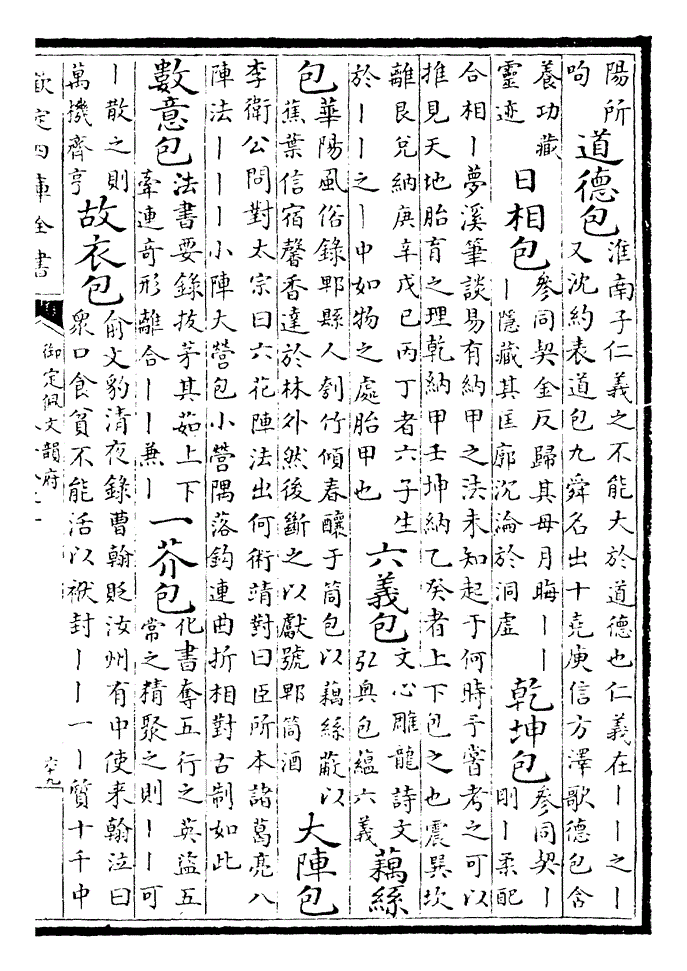 陽所
呴
道德包
淮南子仁義之不能大於道德也仁義在丨丨之丨
又沈約表道包九舜名出十堯庾信方澤歌德包含
養功藏
靈迹
日相包
參同契金反歸其母月晦丨丨
丨隱藏其匡廓沉淪於洞虛
乾坤包
參同契丨
剛丨柔配
合相丨夢溪筆談易有納甲之法未知起于何時予嘗考之可以
推見天地胎育之理乾納甲壬坤納乙癸者上下包之也震巽坎
離艮兌納庚辛戊己丙丁者六子生
於丨丨之丨中如物之處胎甲也
六義包
文心雕龍詩文
引奥包蘊六義
藕絲
包
華陽風俗錄郫縣人刳竹傾春釀于筒包以藕絲蔽以
蕉葉信宿馨香達於林外然後斷之以獻號郫筒酒
大陣包
李衛公問對太宗曰六花陣法出何術靖對曰臣所本諸葛亮八
陣法丨丨丨小陣大營包小營隅落鈎連曲折相對古制如此
數意包
法書要錄拔茅其茹上下
牽連奇形離合丨丨兼丨
一芥包
化書奪五行之英盜五
常之精聚之則丨丨可
丨散之則
萬機齊亨
故衣包
俞文豹清夜錄曹翰貶汝州有中使来翰泣曰
衆口食貧不能活以袱封丨丨一丨質十千中
欽定四庫全書
御定佩文韻府
六十九